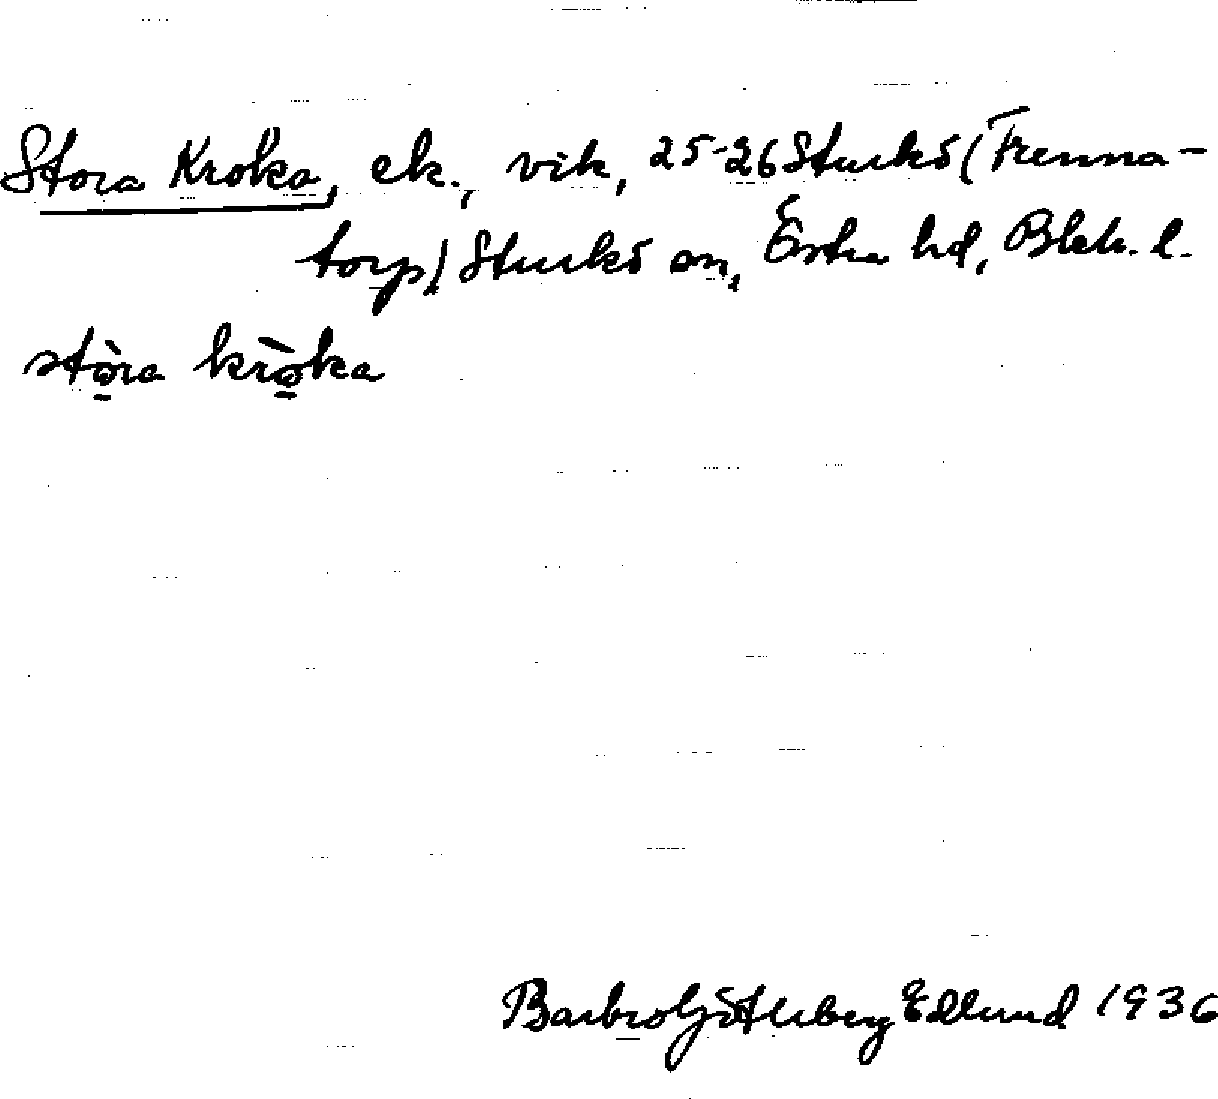 Stora Kroka, ek., vik, 25-26 Sturkö (Trenna-
torp) Sturkö sn, Östra hd, Blek. l.
stòra kròka
Barbro Götherberg Edlund 1936